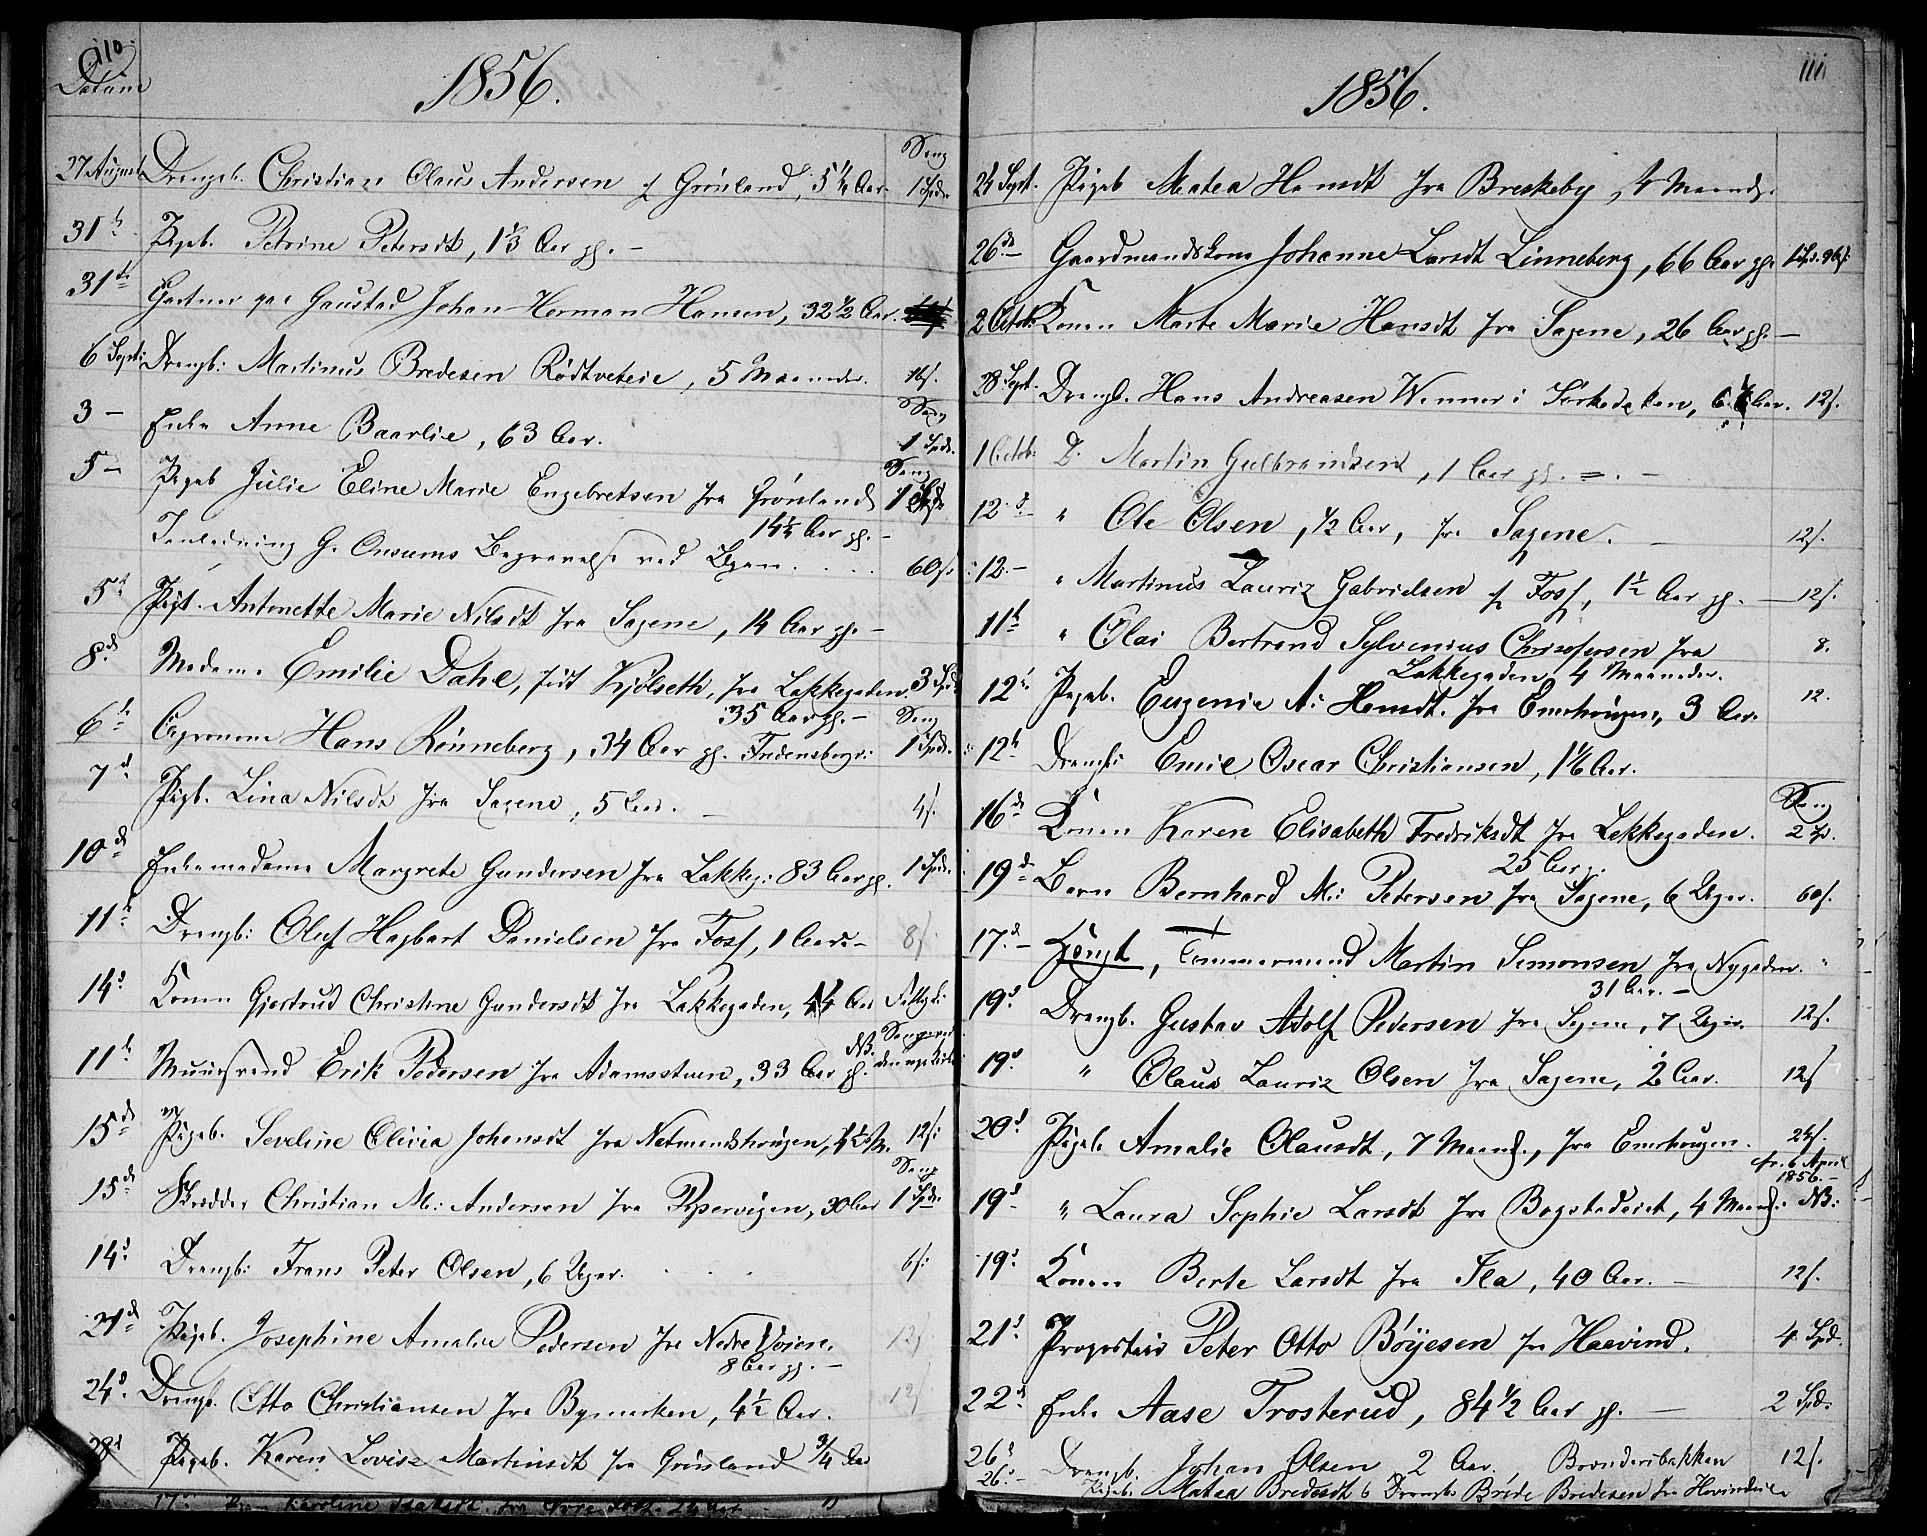 110
Datum
1856.
Seng
27 August Drengeb. Christian Olaus Andersen f Grønland, 5 1/4 Aar. 1 Spd.
31te Pigeb. Petrine Petersdt, 1 1/3 Aar gl. —
31te Gartner paa Gaustad Johan Herman Hansen, 32 1/2 Aar.
6 Sept: Drengb: Martinus Bredesen Rødtveteie, 5 Maaneder. 16s.
Seng
3 — Enke Anne Baarlie, 63 Aar. 1 Spd.
Seng
5 — Pigeb Julie Eline Marie Engebretsen fra Grønland 1 Spd
14 1/2 Aar gl. —
G. Onsums Begravelse ved 60s.
5te Pigeb. Antonette Marie Nilsdt fra Sagene, 14 Aar gl. —
8de Madame Emilie Dahl, født Kjølseth, fra Lakkegaden. 3 Spd
35 Aar gl. — Seng
6te Agronom Hans Rønneberg, 34 Aar gl. Fredensborg: 1 Spd.
7de Pigb. Lina Nilsdt fra Sagene, 5 Aar. — 4s.
10de Enkemadame Margrete Gundersen fra Lakkeg: 83 Aar gl. 1 Spd.
11te Drengb: Oluf Hagbart Danielsen fra Foss, 1 Aar — 8s.
14de Konen Gjertrud Christine Gundersdt fra Lakkegaden, 44 Aar Fattigd:
11te Muursvend Erik Pedersen fra Adamsstuen, 33 Aar gl. NB.
15de Pigeb. Seveline Olivia Johansdt fra Natmandshougen, 4 1/2 M. 12s:
Seng
15de Skredder Christian M: Andersen fra Pipervigen, 30 Aar 1 Spd.
14de Drengb: Frans Peter Olsen, 6 Uger. . . . 6s:
21de Pigeb. Josephine Amalie Pedersen fra Nedre Vøien. 12s
8 Aar gl. —
24de Drengb. Otto Christiansen fra Bymarken, 4 1/2 Aar. 12s
28de Pigeb. Karen Lovise Martinsdt fra Grønland 3/4 Aar
17de Karoline Isaksdt. fra Øvre Foss. 26 Aar. "
111
1856.
24 Sept. Pigeb Matea Hansdt fra Breskeby, 4 Maand.
26de — Gaardmandskone Johanne Larsdt Linneberg, 66 Aar gl. 1 Spd. 96s:
2 Octb: Konen Marte Marie Hansdt fra Sagene, 26 Aar gl. —
28 Sept. Drengb. Hans Andreasen Wenner i Sørkedalen, 6 Aar. 12s.
1 Octob: D. Martin Gulbrandsen, 1 Aar gl. — . —
12te — " Ole Olsen, 1/2 Aar, fra Sagene. — 12s.
12. — " Martinus Lauriz Gabrielsen f Foss, 1 1/2 Aar gl. — 12s.
11te " Olai Bertrand Sylvenius Christofersen fra 8.
Lakkegaden, 4 Maaneder.
12te Pigeb. Eugenie A: Hansdt. fra Enerhougen, 3 Aar. 12.
12te Drengb: Emil Oscar Christiansen, 1 1/6 Aar.
Seng
16de Konen Karen Elisabeth Fredriksdt fra Lakkegaden. 2 Sp.
25 Aar gl.
19de Barn Bernhard M: Petersen fra Sagene, 6 Uger. 60s.
17de — Hængt, Tømmermand Martin Simonsen fra Nygaden. "
31 Aar. —
19de Drengb. Gustav Adolf Pedersen fra Sagene, 7 Uger. 12s.
19de " Olaus Lauriz Olsen fra Sagene, 2 Aar. 12s
20de Pigeb Amalie Olausdt, 7 Maand., fra Enerhougen. 24s.
fr. 6 April
1856. —
19de " Laura Sophie Larsdt fra Bogstadeiet, 4 Maand: NB:
19de Konen Berte Larsdt fra Ila, 40 Aar. — 12s.
21de Proprietair Peter Otto Bøyesen fra Haavind. 4 Spd.
22de Enke Aase Trosterud, 84 1/2 Aar gl. — 2 Spd.
26de Drengb. Johan Olsen 2 Aar, Brænderibakken 12s.
26de — Pigeb: Matea Bredesdt & Drengb: Brede Bredesen fra Hovindeie